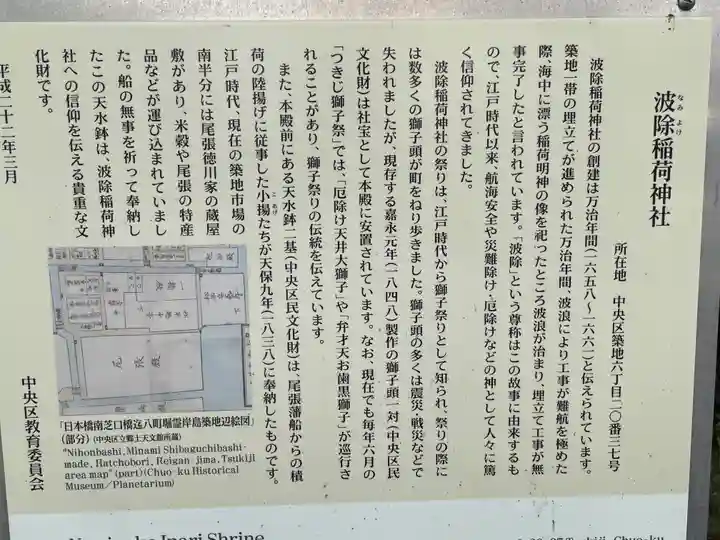 波除稲荷神社
なみよけ
所在地　中央区築地六丁目二〇番三七号
波除稲荷神社の創建は万治年間(一六五八〜一六六一)と伝えられています。
築地一帯の埋立てが進められた万治年間、波浪により工事が難航を極めた
際、海中に漂う稲荷明神の像を祀ったところ波浪が治まり、埋立て工事が無
事完了したと言われています。「波除」という尊称はこの故事に由来するも
ので、江戸時代以来、航海安全や災難除け・厄除けなどの神として人々に篤
く信仰されてきました。
波除稲荷神社の祭りは、江戸時代から獅子祭りとして知られ、祭りの際に
は数多くの獅子頭が町をねり歩きました。獅子頭の多くは震災・戦災などで
失われましたが、現存する嘉永元年(一八四八)製作の獅子頭一対(中央区民
文化財)は社宝として本殿に安置されています。なお、現在でも毎年六月の
「つきじ獅子祭」では、「厄除け天井大獅子」や「弁才天お歯黒獅子」が巡行さ
れることがあり、獅子祭りの伝統を伝えています。
また、本殿前にある天水鉢二基(中央区民文化財)は、尾張藩船からの積
荷の陸揚げに従事した小揚たちが天保九年(一八三八)に奉納したものです。
こあげ
江戸時代、現在の築地市場の
南半分には尾張徳川家の蔵屋
敷があり、米穀や尾張の特産
品などが運び込まれていまし
た。船の無事を祈って奉納し
たこの天水鉢は、波除稲荷神
社への信仰を伝える貴重な文
化財です。
平成二十二年三月
中央区教育委員会
尾張殿
「日本橋南芝口橋迄八町堀霊岸島築地辺絵図」
(部分)(中央区立郷土天文館所蔵)
"Nihonbashi, Minami Shibaguchibashi-
made, Hatchobori, Reigan jima, Tsukiji
area map" (part)(Chuo-ku Historical
Museum/Planetarium)
Inari Shrine
Chuo-ku